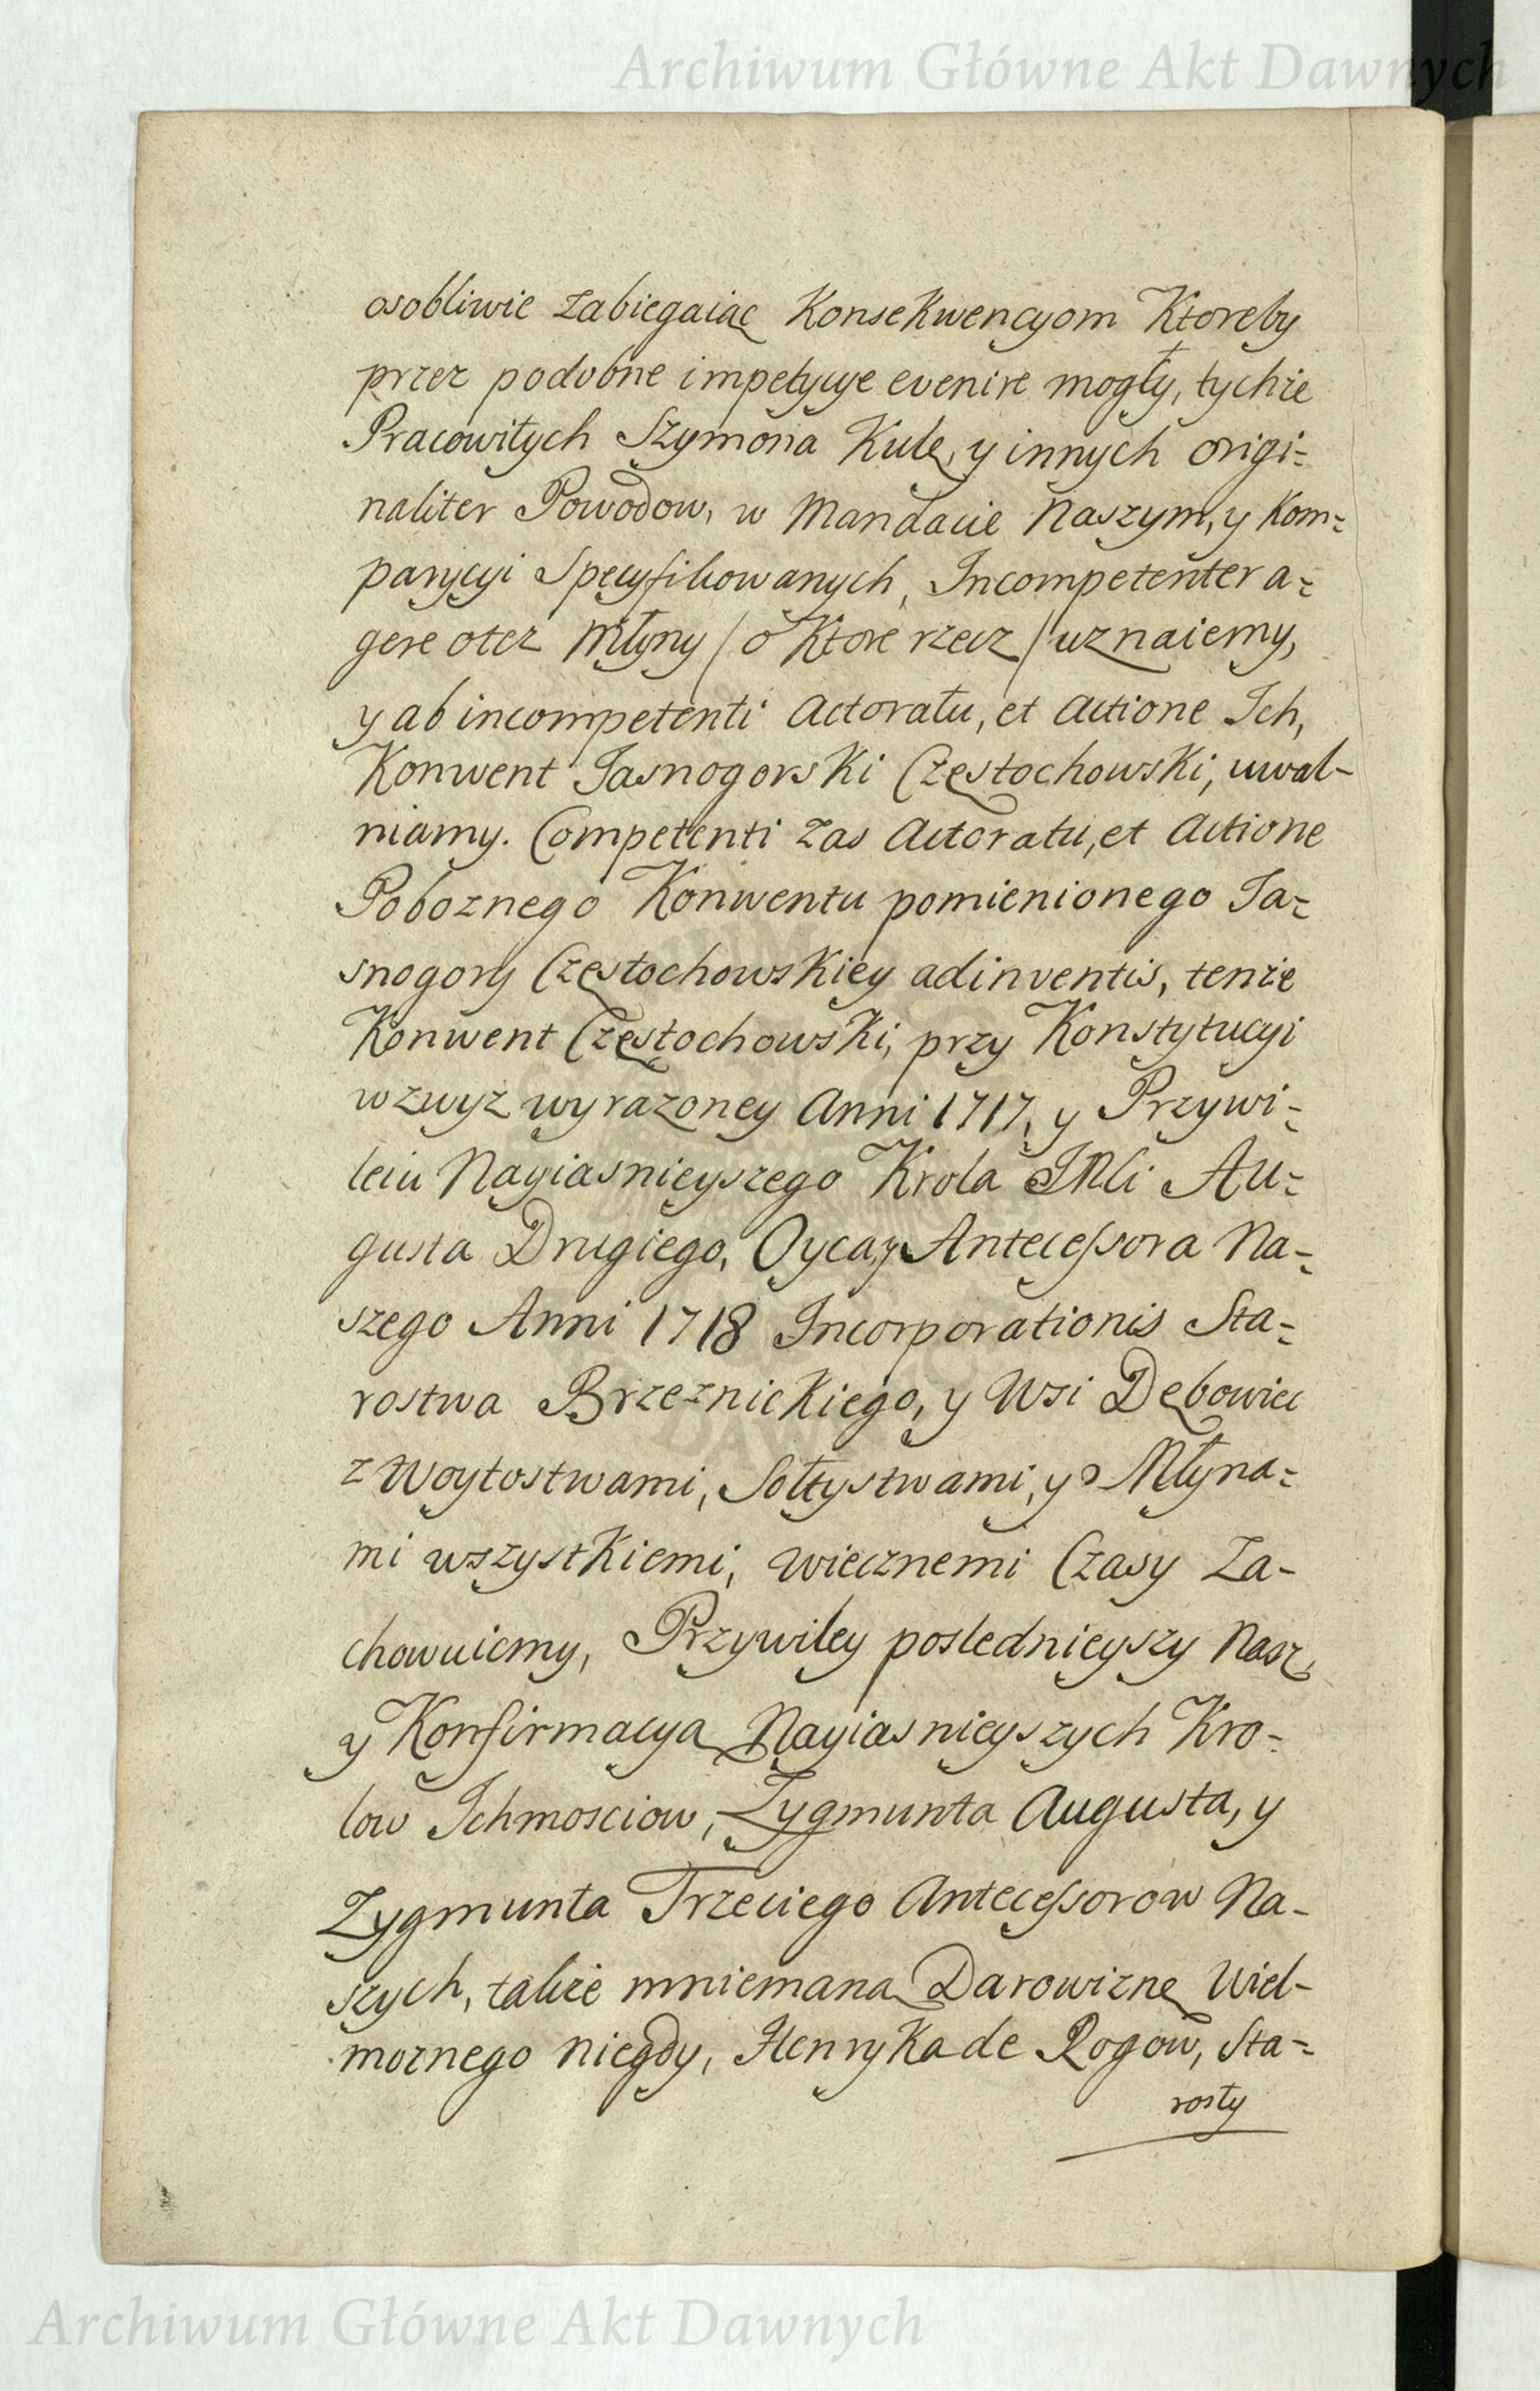 Archiwum Główne Akt Dawnych
osobliwie zabiegaiąc Konsekwencyom Ktoreby
przez podobne impetycye evenire mogły, tychże
Pracowitych Szymona Kulę, y innych origi=
naliter Powodow, w Mandacie Naszym, y Kom=
parycyi Specyfikowanych, Incompetenter a=
gere otez Młyny / o Ktore rzecz / uznaiemy,
y ab incompetenti Actoratu, et Actione Ich,
Konwent Jasnogorski Częstochowski, uwal-
niamy. Competenti zas Actoratu, et Actione
Poboznego Konwentu pomienionego Ja=
snogory Częstochowskiey adinventis, tenże
Konwent Częstochowski, przy Konstytucyi
wzwyz wyrazoney Anni 1717, y Przywi=
leiu Nayiasnieyszego Krola JMci Au=
gusta Drugiego, Oyca, y Antecessora Na=
szego Anni 1718 Incorporationis Sta=
rostwa Brzeznickiego, y Wsi Dębowiec
z Woytostwami, Sołtystwami, y Młyna=
mi wszystkiemi, wiecznemi Czasy za-
chowuiemy, Przywiley poslednieyszy Nasz,
y Konfirmacyą Nayiasnieyszych Kro=
low Ichmosciow, Zygmunta Augusta, y
Zygmunta Trzeciego Antecessorow Na-
szych, takze mniemaną Darowiznę Wiel-
moznego niegdy, Henryka de Rogow, Sta=
rosty
Archiwum Główne Akt Dawnych